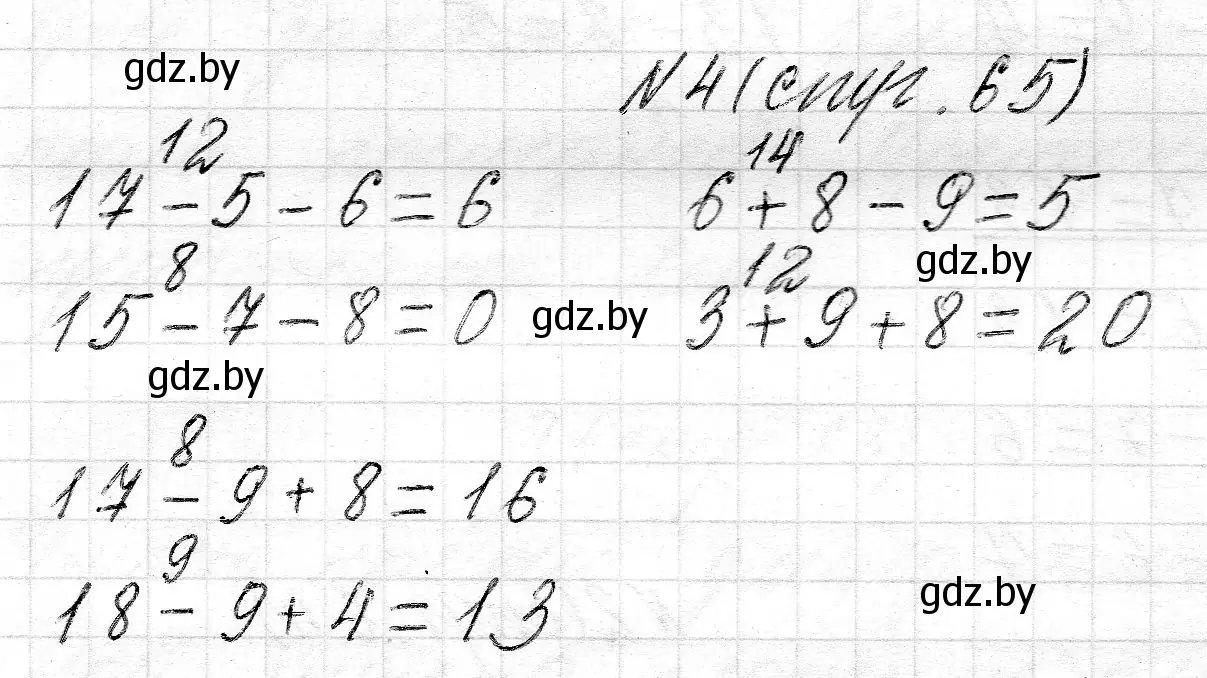 gdz.by
N4(стр. 65)
12
17 - 5 - 6 = 6
14
6 + 8 - 9 = 5
8
15 - 7 - 8 = 0
gdz.by
12
3 + 9 + 8 = 20
gdz.by
gdz.by
8
17 - 9 + 8 = 16
9
18 - 9 + 4 = 13
gdz.by